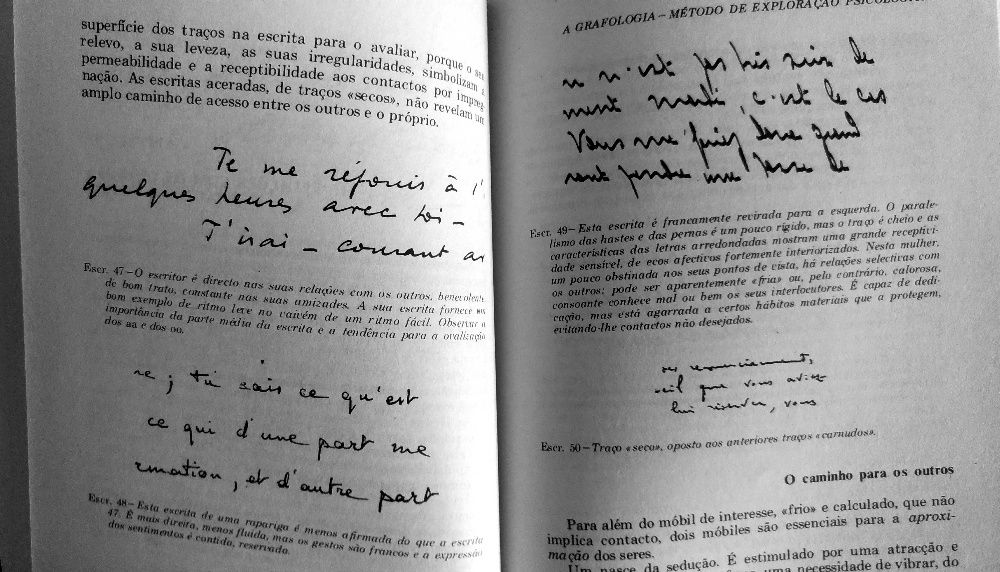 superfície dos traços na escrita para o avaliar, porque o seu
relevo, a sua leveza, as suas irregularidades, simbolizam a
permeabilidade e a receptibilidade aos contactos por impreg-
nação. As escritas aceradas, de traços «secos», não revelam um
amplo caminho de acesso entre os outros e o próprio.
Te me réjouis à l'
quelques heures avec toi –
J'irai – courant
Escr. 47 – O escritor é directo nas suas relações com os outros, benevolente,
de bom trato, constante nas suas amizades. A sua escrita fornece um
bom exemplo de ritmo leve no vaivém de um ritmo fácil. Observar a
importância da parte média da escrita e a tendência para a ovalização
dos aa e dos oo.
re ; tu sais ce qu'est
ce qui d'une part me
rmation, et d'autre part
Escr. 48 – Esta escrita de uma rapariga é menos afirmada do que a escrita
47. É mais direita, menos fluida, mas os gestos são francos e a expressão
dos sentimentos é contida, reservada.
A GRAFOLOGIA – MÉTODO DE EXPLORAÇÃO
n'est pas
c'est le cas
Vous me
une
Escr. 49 – Esta escrita é francamente revirada para a esquerda. O parale-
lismo das hastes e das pernas é um pouco rígido, mas o traço é cheio e as
características das letras arredondadas mostram uma grande receptivi-
dade sensível, de ecos afectivos fortemente interiorizados. Nesta mulher,
um pouco obstinada nos seus pontos de vista, há relações selectivas com
os outros: pode ser aparentemente «fria» ou, pelo contrário, calorosa,
consoante conhece mal ou bem os seus interlocutores. É capaz de dedi-
cação, mas está agarrada a certos hábitos materiais que a protegem,
evitando-lhe contactos não desejados.
que vous
lui vous
Escr. 50 – Traço «seco», oposto aos anteriores traços «carnudos».
O caminho para os outros
Para além do móbil de interesse, «frio» e calculado, que não
implica contacto, dois móbiles são essenciais para a aproxi-
mação dos seres.
Um nasce da sedução. É estimulado por uma atracção e
uma necessidade de vibrar, do